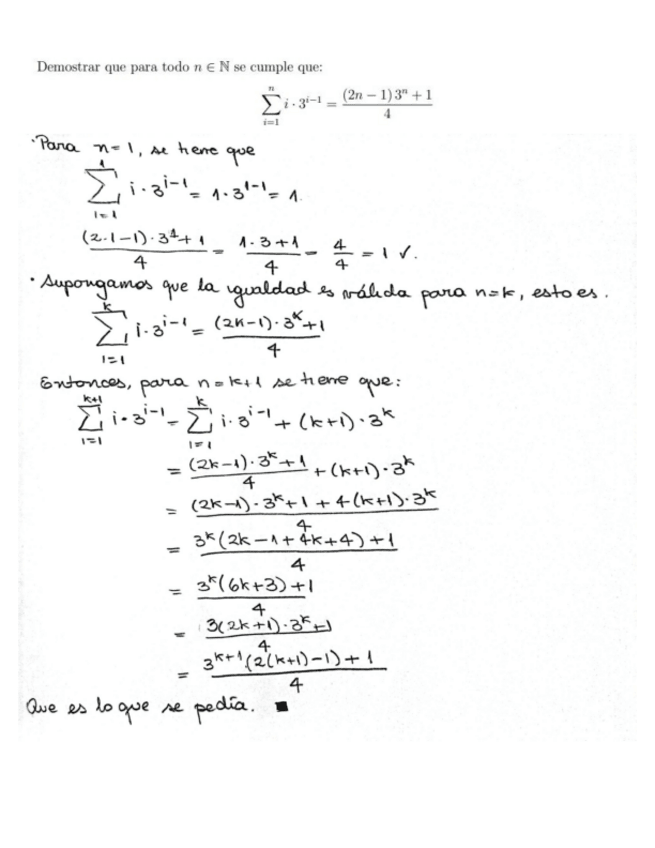 Demostrar que para todo n ∈ ℕ se cumple que:
\sum_{i=1}^{n} i · 3^{i−1} = \frac{(2n − 1) 3^n + 1}{4}
· Para n = 1, se tiene que
\sum_{i=1}^{1} i · 3^{i−1} = 1 · 3^{1−1} = 1.
\frac{(2·1−1)·3^1 + 1}{4} = \frac{1·3+1}{4} = \frac{4}{4} = 1 ✓.
· Supongamos que la igualdad es válida para n=k, esto es.
\sum_{i=1}^{k} i·3^{i−1} = \frac{(2k−1)·3^k + 1}{4}
Entonces, para n = k+1 se tiene que:
\sum_{i=1}^{k+1} i·3^{i−1} = \sum_{i=1}^{k} i·3^{i−1} + (k+1)·3^k
= \frac{(2k−1)·3^k + 1}{4} + (k+1)·3^k
= \frac{(2k−1)·3^k + 1 + 4(k+1)·3^k}{4}
= \frac{3^k(2k−1+4k+4)+1}{4}
= \frac{3^k(6k+3)+1}{4}
= \frac{3(2k+1)·3^k+1}{4}
= \frac{3^{k+1}(2(k+1)−1)+1}{4}
Que es lo que se pedía. ■